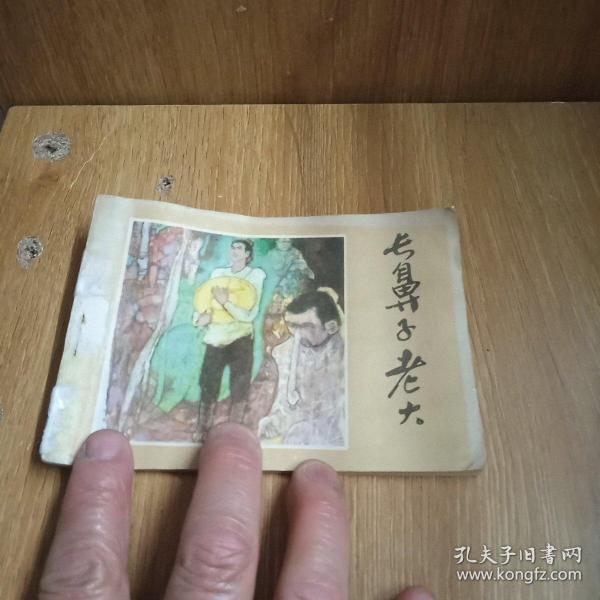 长鼻子老大
孔夫子旧书网
www.kongfz.com